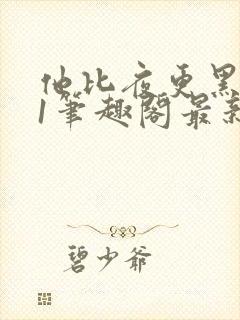 他比夜更黑
1笔趣阁最新
碧少爷